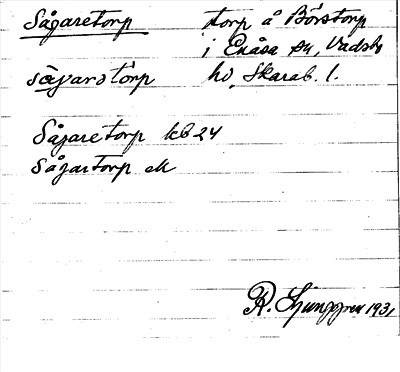 Sågaretorp torp å Börstorp
i Enåsa sn, Vadsbo
sågarstörp hd, Skarab. l.
Sågaretorp kb 24
Sågartorp ek
R. Ljunggren 1931